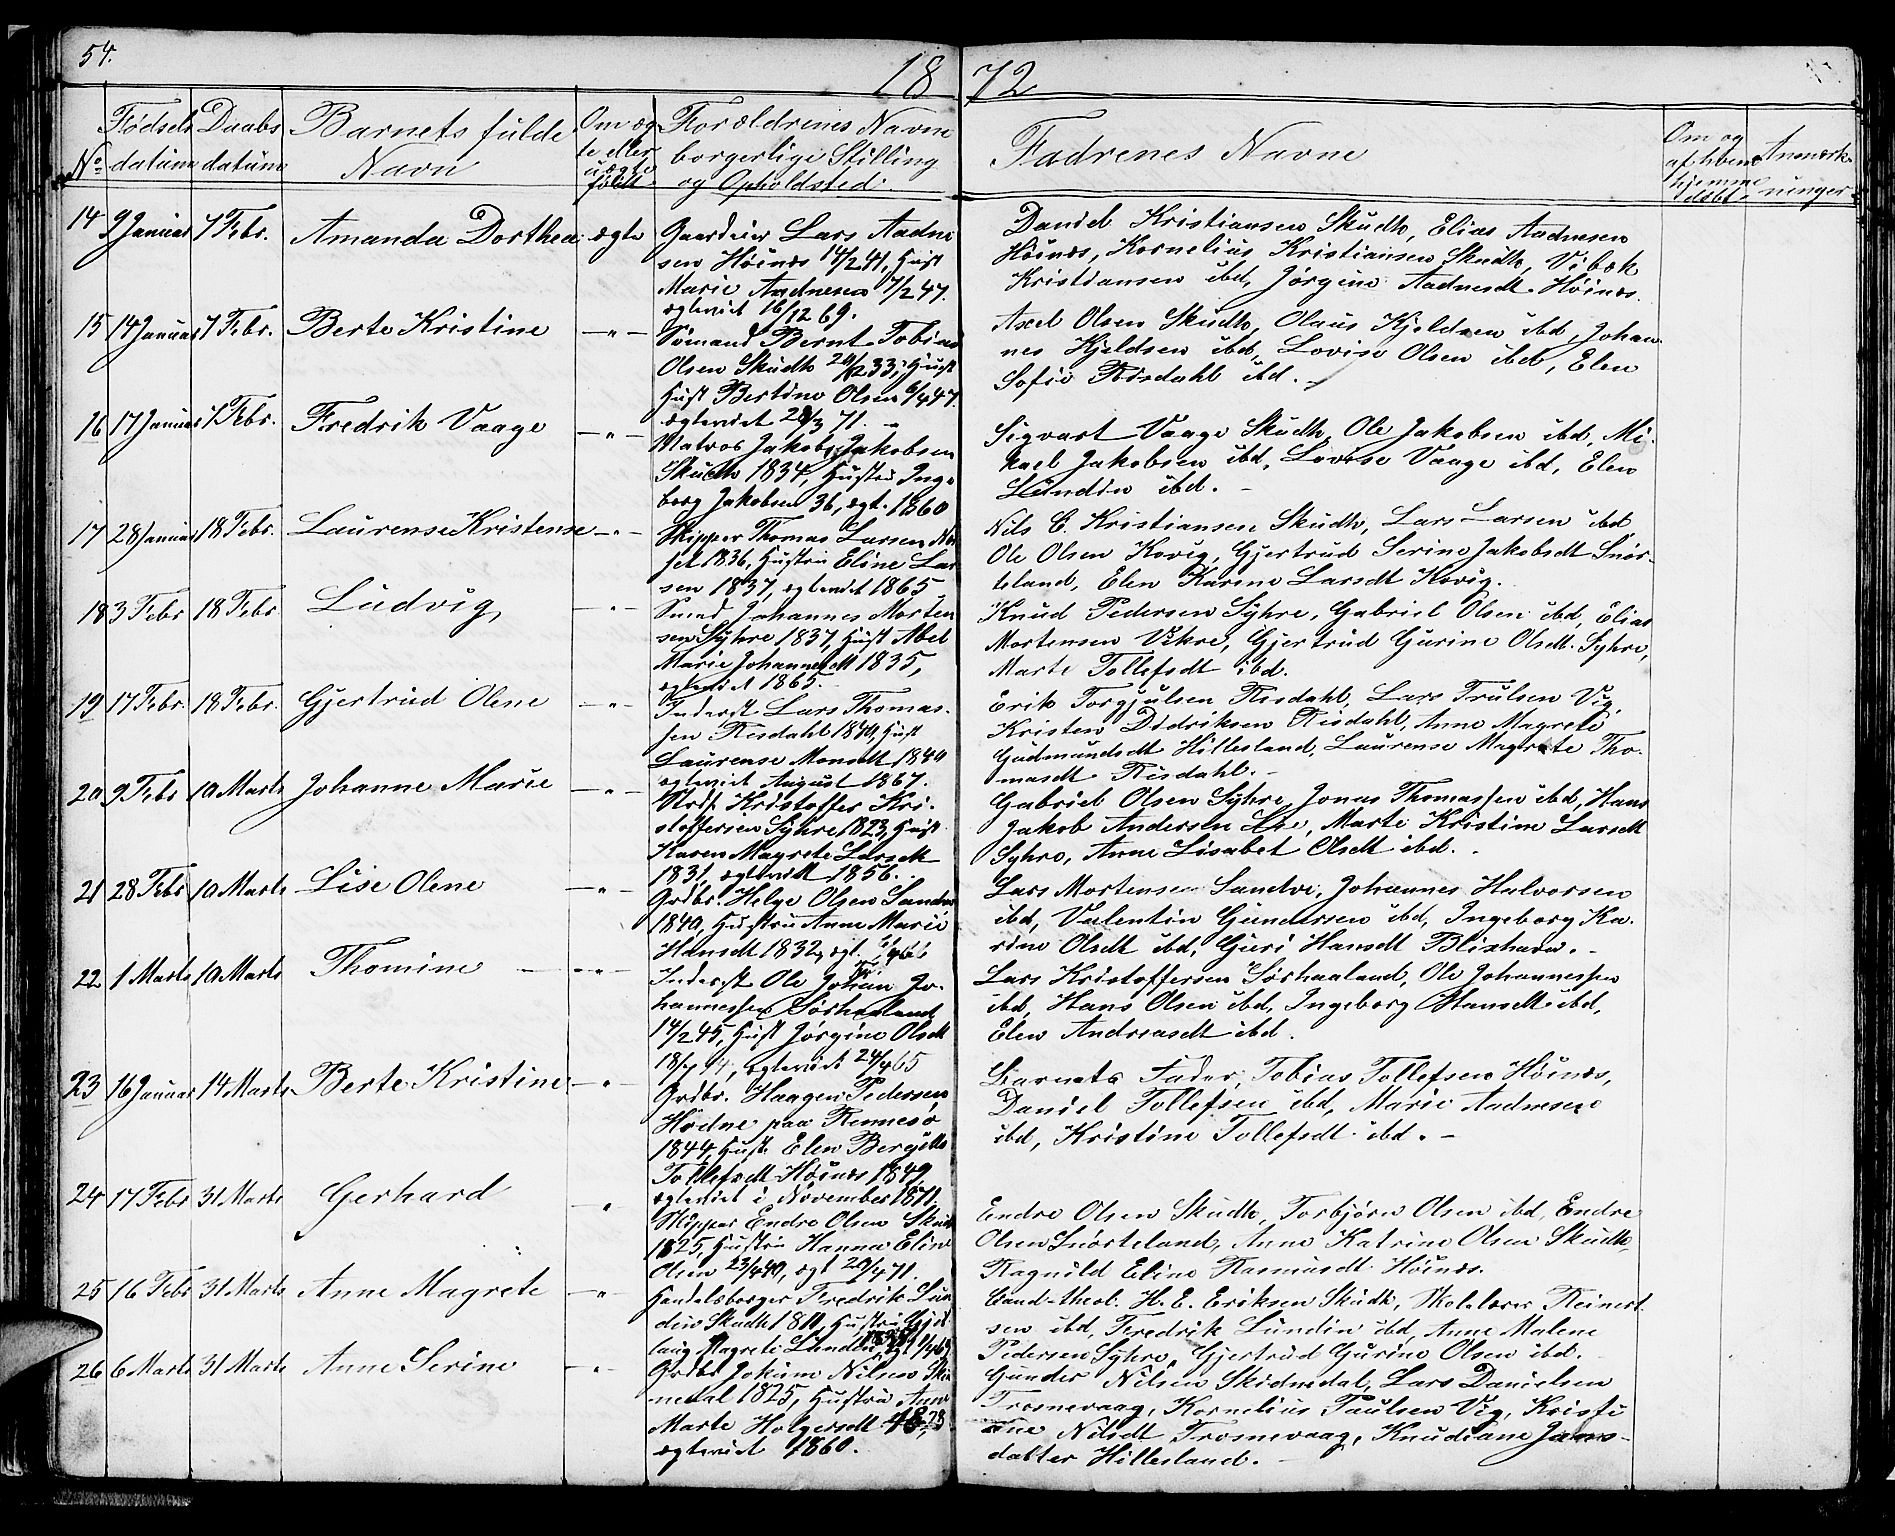 54.
18 72
Fødsels Daabs Barnets fulde Om æg Forældrenes Navn Fadrenes Navne Om og Anmærk-
No datum datum Navn te eller borgerlige Stilling hjemme ninger
født og Opholdsted.
14 9 Januar 7 Febr. Amanda Dorthea ægte
Gaardeier Lars Aadne
sen Høinæs 14/2 41, Hust
Marie Aadnesen 7/2 47.
ægteviet 16/12 69.
Daniel Kristiansen Skudh, Elias Aadnesen
Høinæs, Kornelius Kristiansen Skudh, Vibæk
Kristiansen ibd, Jørgine Aadnesdt Høinæs.
15 14 Januar 7 Febr. Berte Kristine — " —
Sømand Bernt Tobias
Olsen Skudh 33, Hust
Hust Bertine Olsen 6/4 47.
ægteviet 71.
Axel Olsen Skudh, Olaus Kjeldsen ibd, Johan-
nes Kjeldsen ibd, Lovise Olsen ibd, Elen
Sofie Risdahl ibd. -
16 17 Januar 7 Febr. Fredrik Vaage — " —
Matros Jakob Jakobsen
Skudh 1834, Hustru Inge-
borg Jakobsen 36, ægt. 1860
Sigvart Vaage Skudh, Ole Jakobsen ibd, Mi-
kael Jakobsen ibd, Lovise Vaage ibd, Elen
Lundin ibd. -
17 28 Januar 18 Febr. Laurense Kristense — " —
Skipper Thomas Larsen
1836, Hustru Eline Lar
sen 1837, ægteviet 1865
Nils C. Kristiansen Skudh, Lars Larsen ibd
Ole Olsen Kovig, Gjertrud Serine Jakobsdt Snør-
teland, Elen Karine Larsdt Kovig.
18 3 Febr 18 Febr. Ludvig — " —
Smed Johannes Morten
sen Syhre 1837, Hust Abel
Marie Johannesdt 1835,
ægteviet 1865.
Knud Pedersen Syhre, Gabriel Olsen ibd, Elias
Mortensen Vikre, Gjertrud Gurine Olsdt. Syhre,
Marte Tollefsdt ibd.
19 17 Febr. 18 Febr. Gjertrud Olene — " —
Inderst Lars Thomas-
sen Risdahl 1840, Hust
Laurense Monsdt 1840
ægteviet August 1867.
Erik Torgjulsen Risdahl, Lars Trulsen Vig,
Kristen Didriksen Risdahl, Anne Magrete
Gudmundsdt Hillesland, Laurense Magrete Tho-
masdt Risdahl. -
20 9 Febr 10 Marts Johanne Marie — " —
Kristoffer Kri-
stoffersen Syhre 1823, Hust
Karen Magrete Larsdt
1831, ægteviet 1856.
Gabriel Olsen Syhre, Jonas Thomassen ibd, Hans
Jakob Andersen Lie, Marte Kristine Larsdt
Syhre, Anne Lisabet Olsdt ibd. -
21 28 Febr 10 Marts Lise Olene — " —
Grdbr. Helge Olsen Sandve
1840, Hustru Anne Marie
Hansdt 1832, ægt.
Lars Mortensen Sandve, Johannes Halvorsen
ibd, Valentin Gundersen ibd, Ingeborg Ka-
rine Olsdt ibd, Guri Hansdt Blixhavn. -
22 1 Marts 10 Marts Thomine — " —
Inderst Ole Johan Jo-
hannessen Sørhaaland
14/2 45, Hust Jørgine Olsdt
ægteviet 24/4 65
Lars Kristoffersen Sørhaaland, Ole Johannessen
ibd, Hans Olsen ibd, Ingeborg Hansdt ibd,
Elen Andreasdt ibd.
23 16 Januar 14 Marts Berte Kristine — " —
Grdbr. Haagen Pedersen
Hodne paa Rennesø
1844, Hust. Elen Bergitte
Tollefsdt Høinæs 1849
ægteviet i November 1871.
Barnets Fader, Tobias Tollefsen Høinæs,
Daniel Tollefsen ibd, Marie Aadnesen
ibd, Kristine Tollefsdt ibd. -
24 17 Febr 31 Marts Gerhard — " —
Skipper Endre Olsen Skudh
1825, Hustru Hanna Eline
Olsen 23/4 40, ægt 20/4 71.
Endre Olsen Skudh, Torbjørn Olsen ibd, Endre
Olsen Snørteland, Anne Katrine Olsen Skudh,
Ragnild Eline Rasmusdt Høinæs.
25 16 Febr 31 Marts Anne Magrete — " —
Handelsborger Fredrik Lun
din Skudh 1811, Hustru
laug Magrete Lundin
Cand-theol. H. E. Eriksen Skudh, Skolelærer Reinert-
sen ibd, Fredrik Lundin ibd, Anne Malene
Pedersen Syhre, Gjertrud Gurine Olsen ibd.
26 6 Marts 31 Marts Anne Serine — " —
Grdbr Jokum Nilsen
1825, Hustru Anne
Marte Holgersdt 28
ægteviet 1860.
Gunder Nilsen Skidnedal, Lars Danielsen
Trosnevaag, Kornelius Paulsen Vig, Kristi
ane Nilsdt Trosnevaag, Knudiane Jans-
datter Hillesland. -